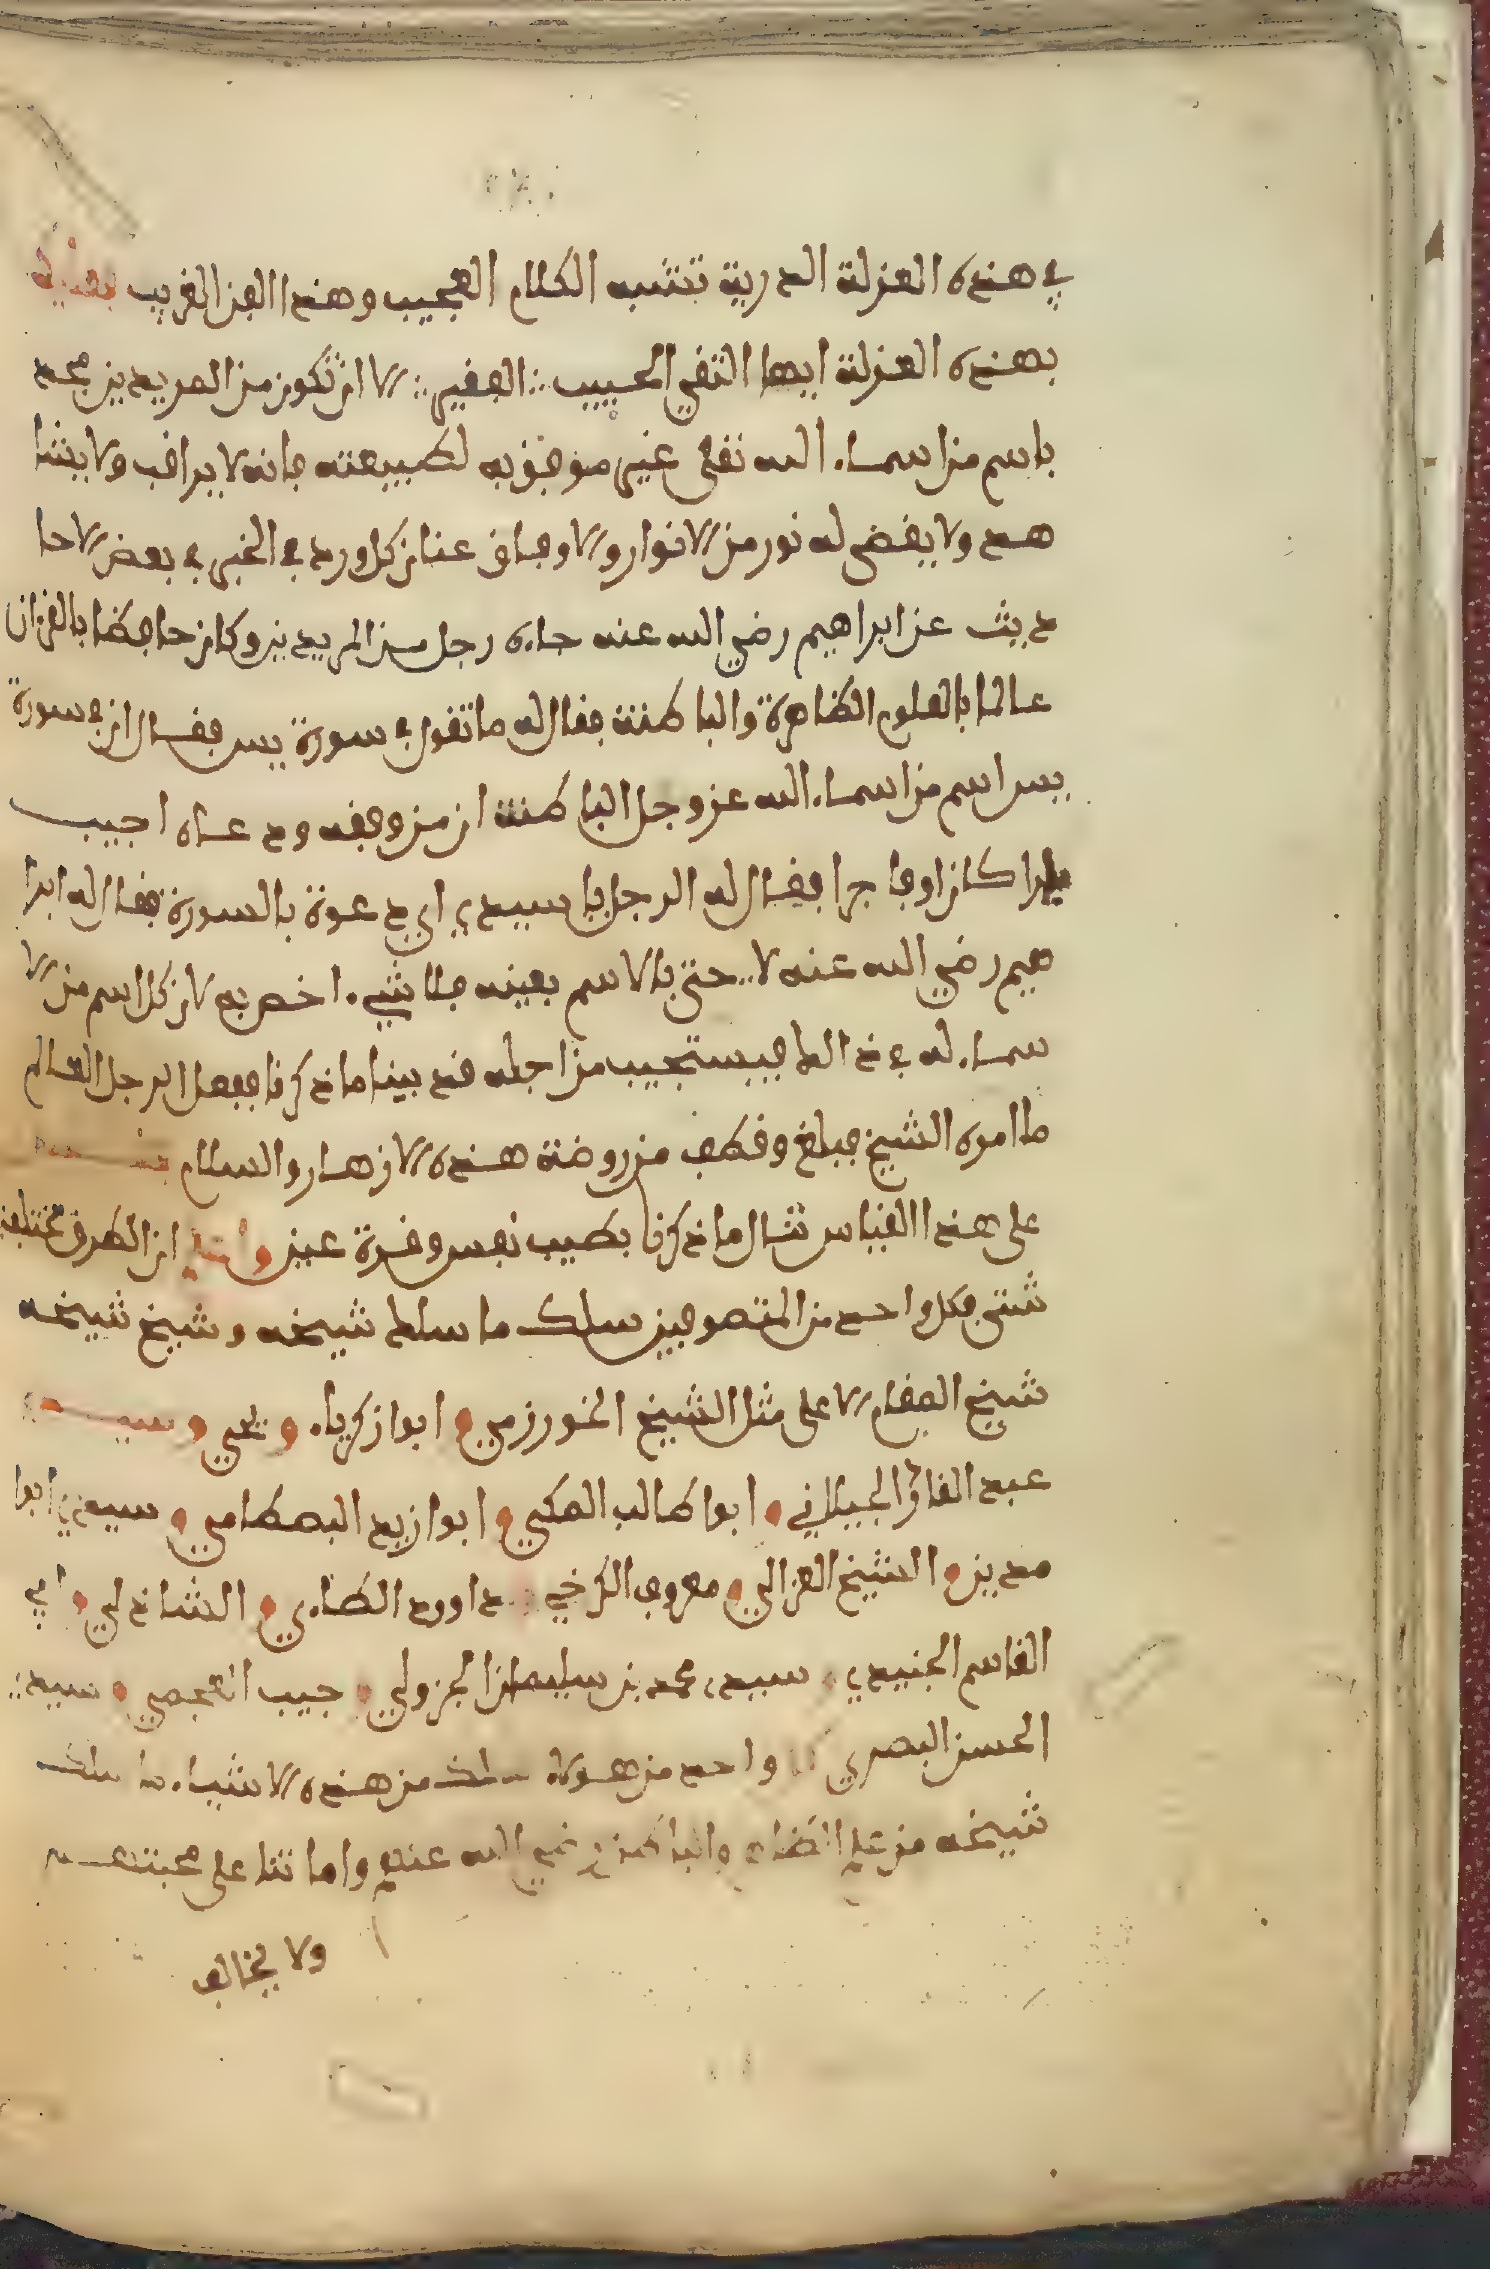 في هذه العزلة الدرية تنتبه الكلام العجيب وهذا الفن الغريب فعليك
بهذه العزلة ايها التقي الحبيب الفقير الا ان تكون من المريدين بمجد
باسم من اسماء الله تعلى غير موفوق به لطبيعته فانه لا يراقب ولا يشا
هد ولا يفضى له نور من الانوار والاوفاق عنا ان كل ورد في الخبر في بعض الاحا
ديث عن ابراهيم رضي الله عنه جاءه رجل من المريدين وكان حافظا بالقران
عالما بالعلوم الظاهرة والباطنة فقال له ما تقول في سورة يس فقال ان في سورة
يس اسم من اسماء الله عز وجل الباطنة ان من وفقه ودعاه اجيب
برا كان او فاجرا فقال له الرجل يا سيدي اي دعوة بالسورة فقال له ابرا
هيم رضي الله عنه لا حتى بالاسم بعينه فلا شيء اخص به لان كل اسم من الا
سماء له في ذلك فيستجيب من اجله قد بينا ما ذكرنا ففعل الرجل العالم
ما امره الشيخ فبلغ وقطف من روضة هذه الازهار والسلام
على هذا القياس مثال ما ذكرنا بطيب نفس وقرة عين واعلم ان الطرق مختلفة
شتى فكل واحد من المتصوفين سلك ما سلك شيخه وشيخ شيخه
شيخ المقام الاعلى مثل الشيخ الخورزمي ابوا زكرياء و يحيى و سيدي
عبد القادر الجيلاني ابوا طالب المكي ابوا زيد البصطامي سيدي ابوا
مدين الشيخ الغزالي معروف الكرخي داوود الطاءي الشاذلي ابي
القاسم الجنيدي سيدي محمد بن سليمان الجزولي حبيب العجمي سيدي
الحسن البصري كل واحد من هولاء سلك من هذه الاشياء ما سلك
شيخه من علم الظاهر والباطن رضي الله عنهم واماتنا على محبتهم
ولا يخالف